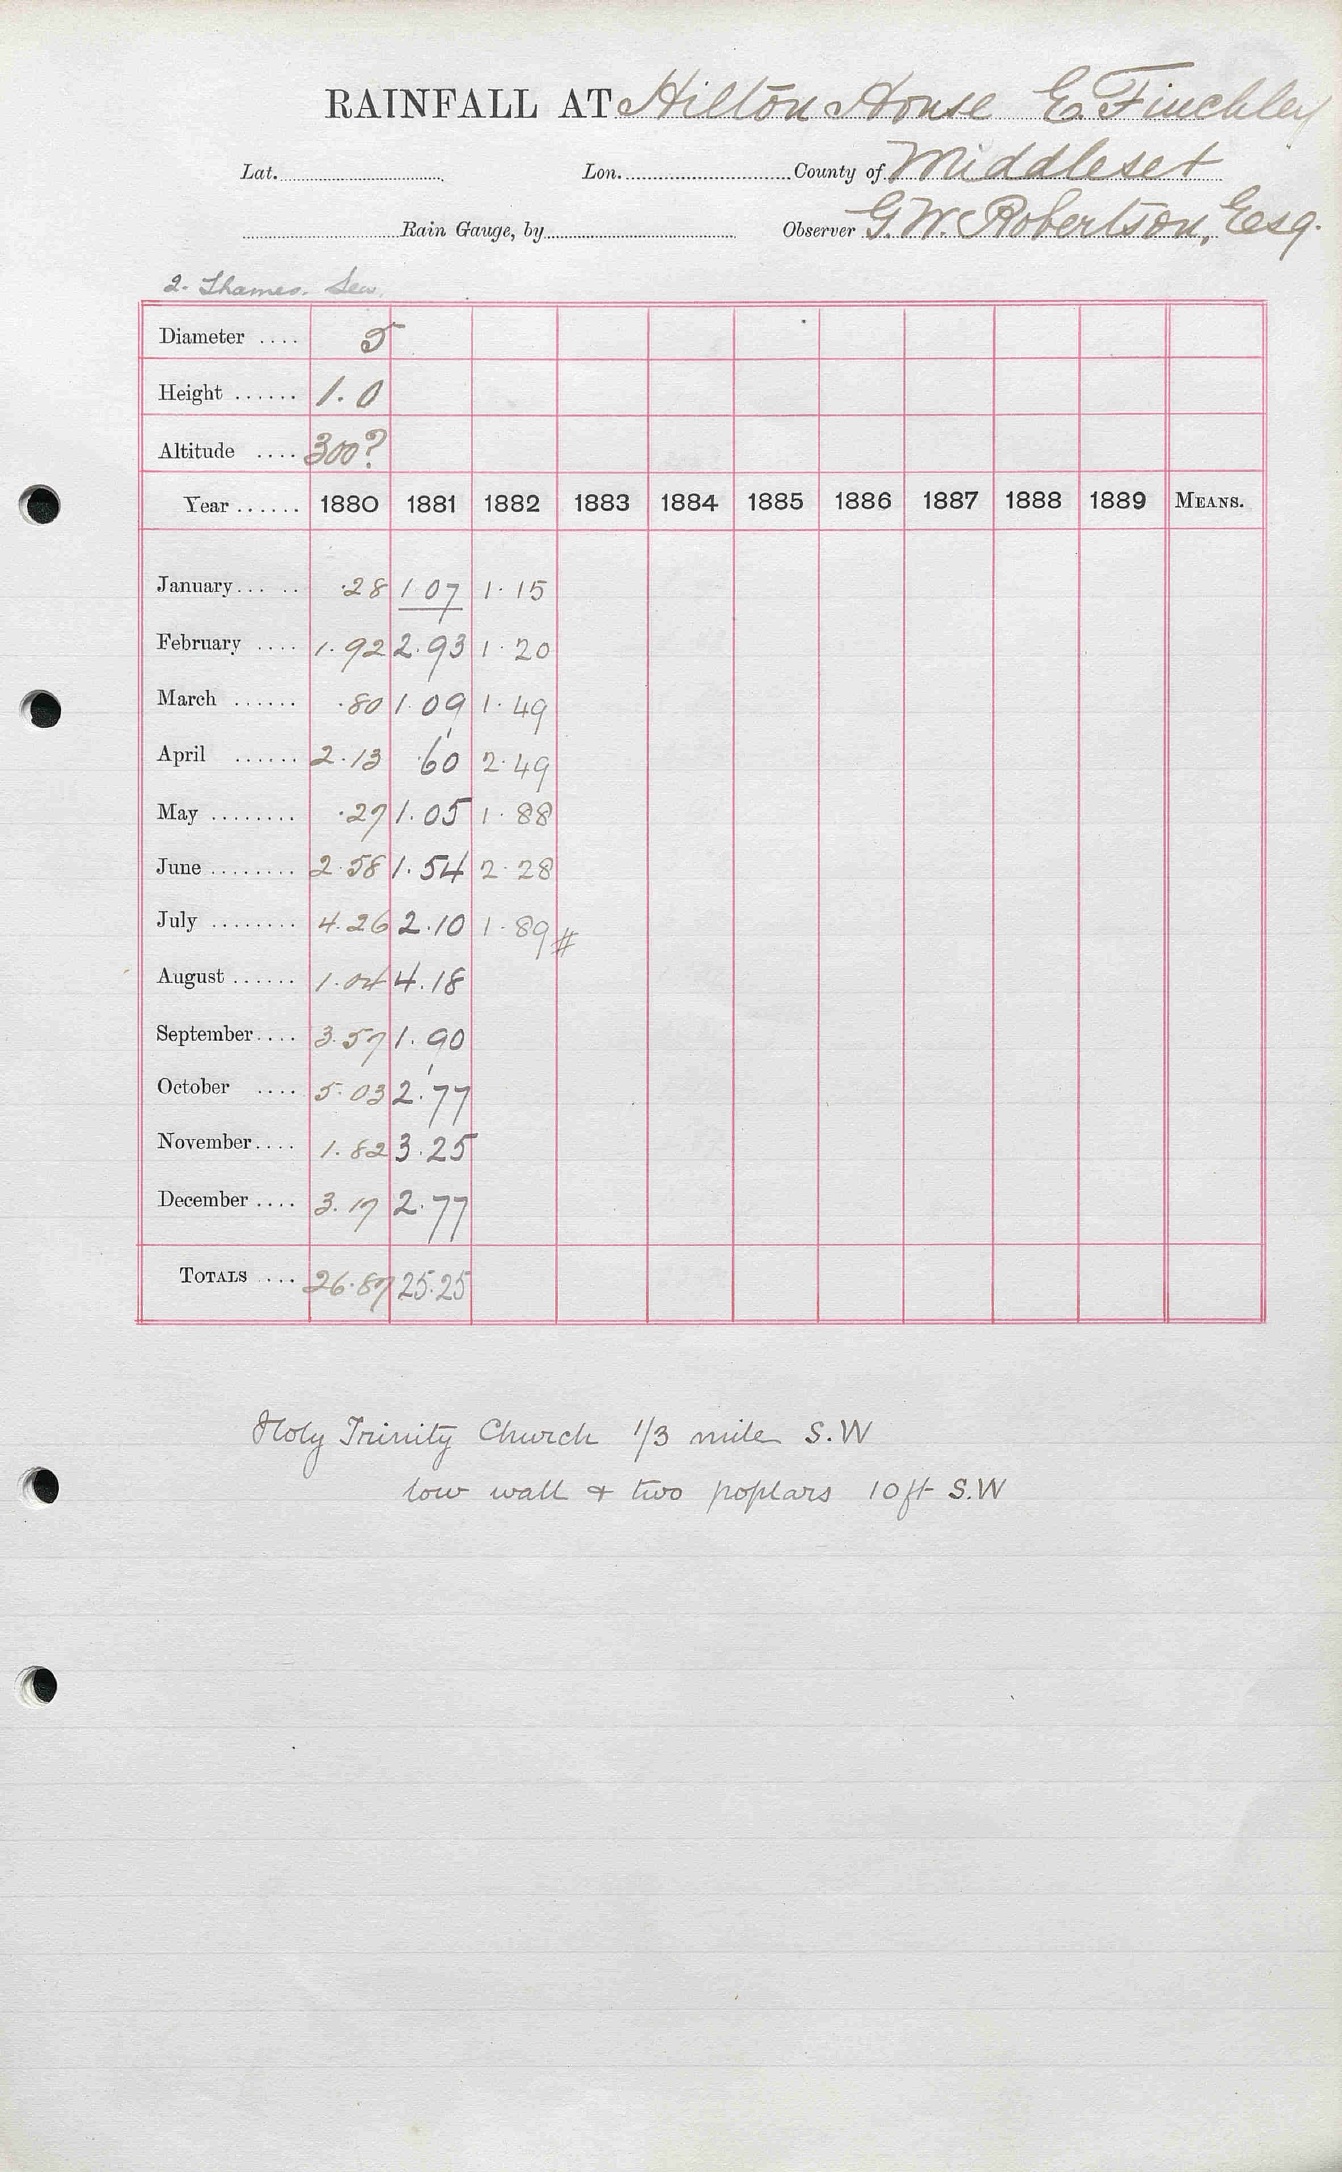 RAINFALL AT Hilton House E. Finchley
Lat. Lon. County of Middleset
Rain Gauge, by Observer G. W. Robertson, Esq.
2. Thames. Sew.
Diameter .... 5
Height ...... 1.0
Altitude .... 300?
Year ...... 1880 1881 1882 1883 1884 1885 1886 1887 1888 1889 MEANS.
January... .. .28 1.07 1.15
February .... 1.92 2.93 1.20
March ...... .80 1.09 1.49
April ...... 2.13 .60 2.49
May ........ .27 1.05 1.88
June ........ 2.58 1.54 2.28
July ........ 4.26 2.10 1.89 #
August ...... 1.04 4.18
September.... 3.57 1.90
October .... 5.03 2.77
November.... 1.82 3.25
December .... 3.17 2.77
TOTALS .... 26.87 25.25
Holy Trinity Church 1/3 mile S.W
low wall & two poplars 10 ft S.W